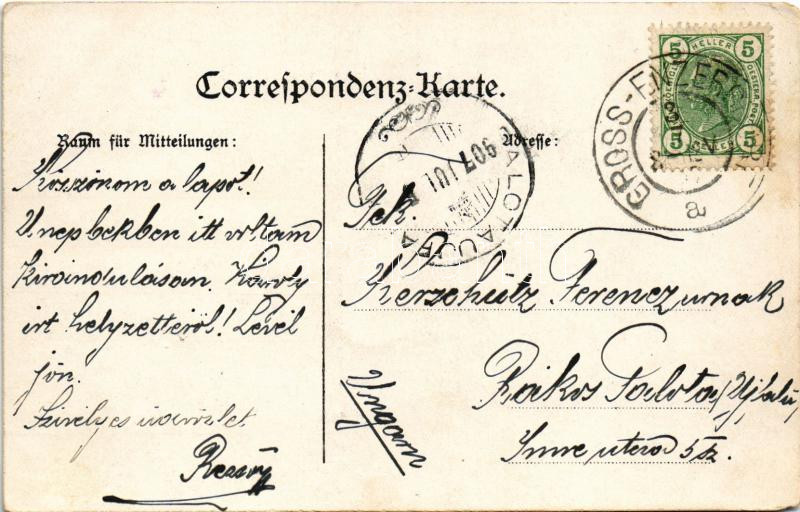 Correspondenz-Karte.
Raum für Mitteilungen:
Köszönöm a lapot!
Ünnepbekben itt voltam
kirándulásan. Károly
irt helyzetteiröl! Levél
jön.
Szivélyes üdvözlet
Rezső
Adresse:
Tek.
Kerschütz Ferencz urnak
Rákos Palota, Ujfalu,
Imre utcza 5 sz.
Ungarn
5 HELLER 5
5 HELLER 5
GROSS-E
a
PALOTAUJFA
907 JUL